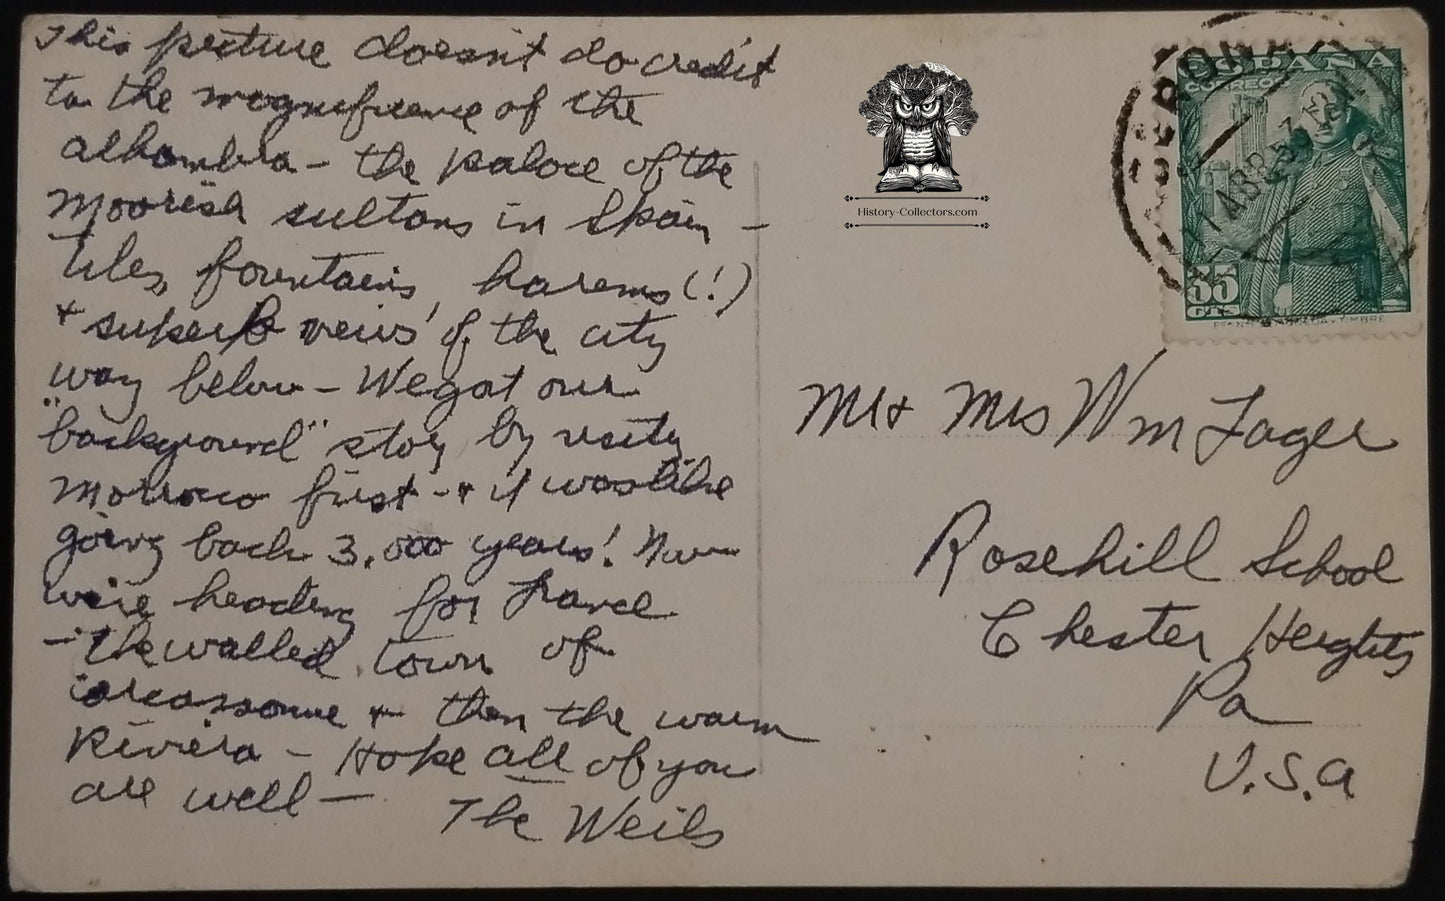 This picture doesn't do credit
to the magnificence of the
alhambra - the palace of the
Moorish sultans in Spain -
tiles, fountains, harems (!)
+ superb views of the city
way below - We got our
"background" story by
Morroco first - + it was like
going back 3,000 years! Now
we're heading for France
- the walled town of
Carcassonne + then the warm
Riviera - Hope all of you
are well -
The Weils
History-Collectors.com
ESPAÑA
CORREOS
35
CTS
GERONA
1 ABR 53
Mr + Mrs Wm Fager
Rosehill School
Chester Heights
Pa
U.S.A